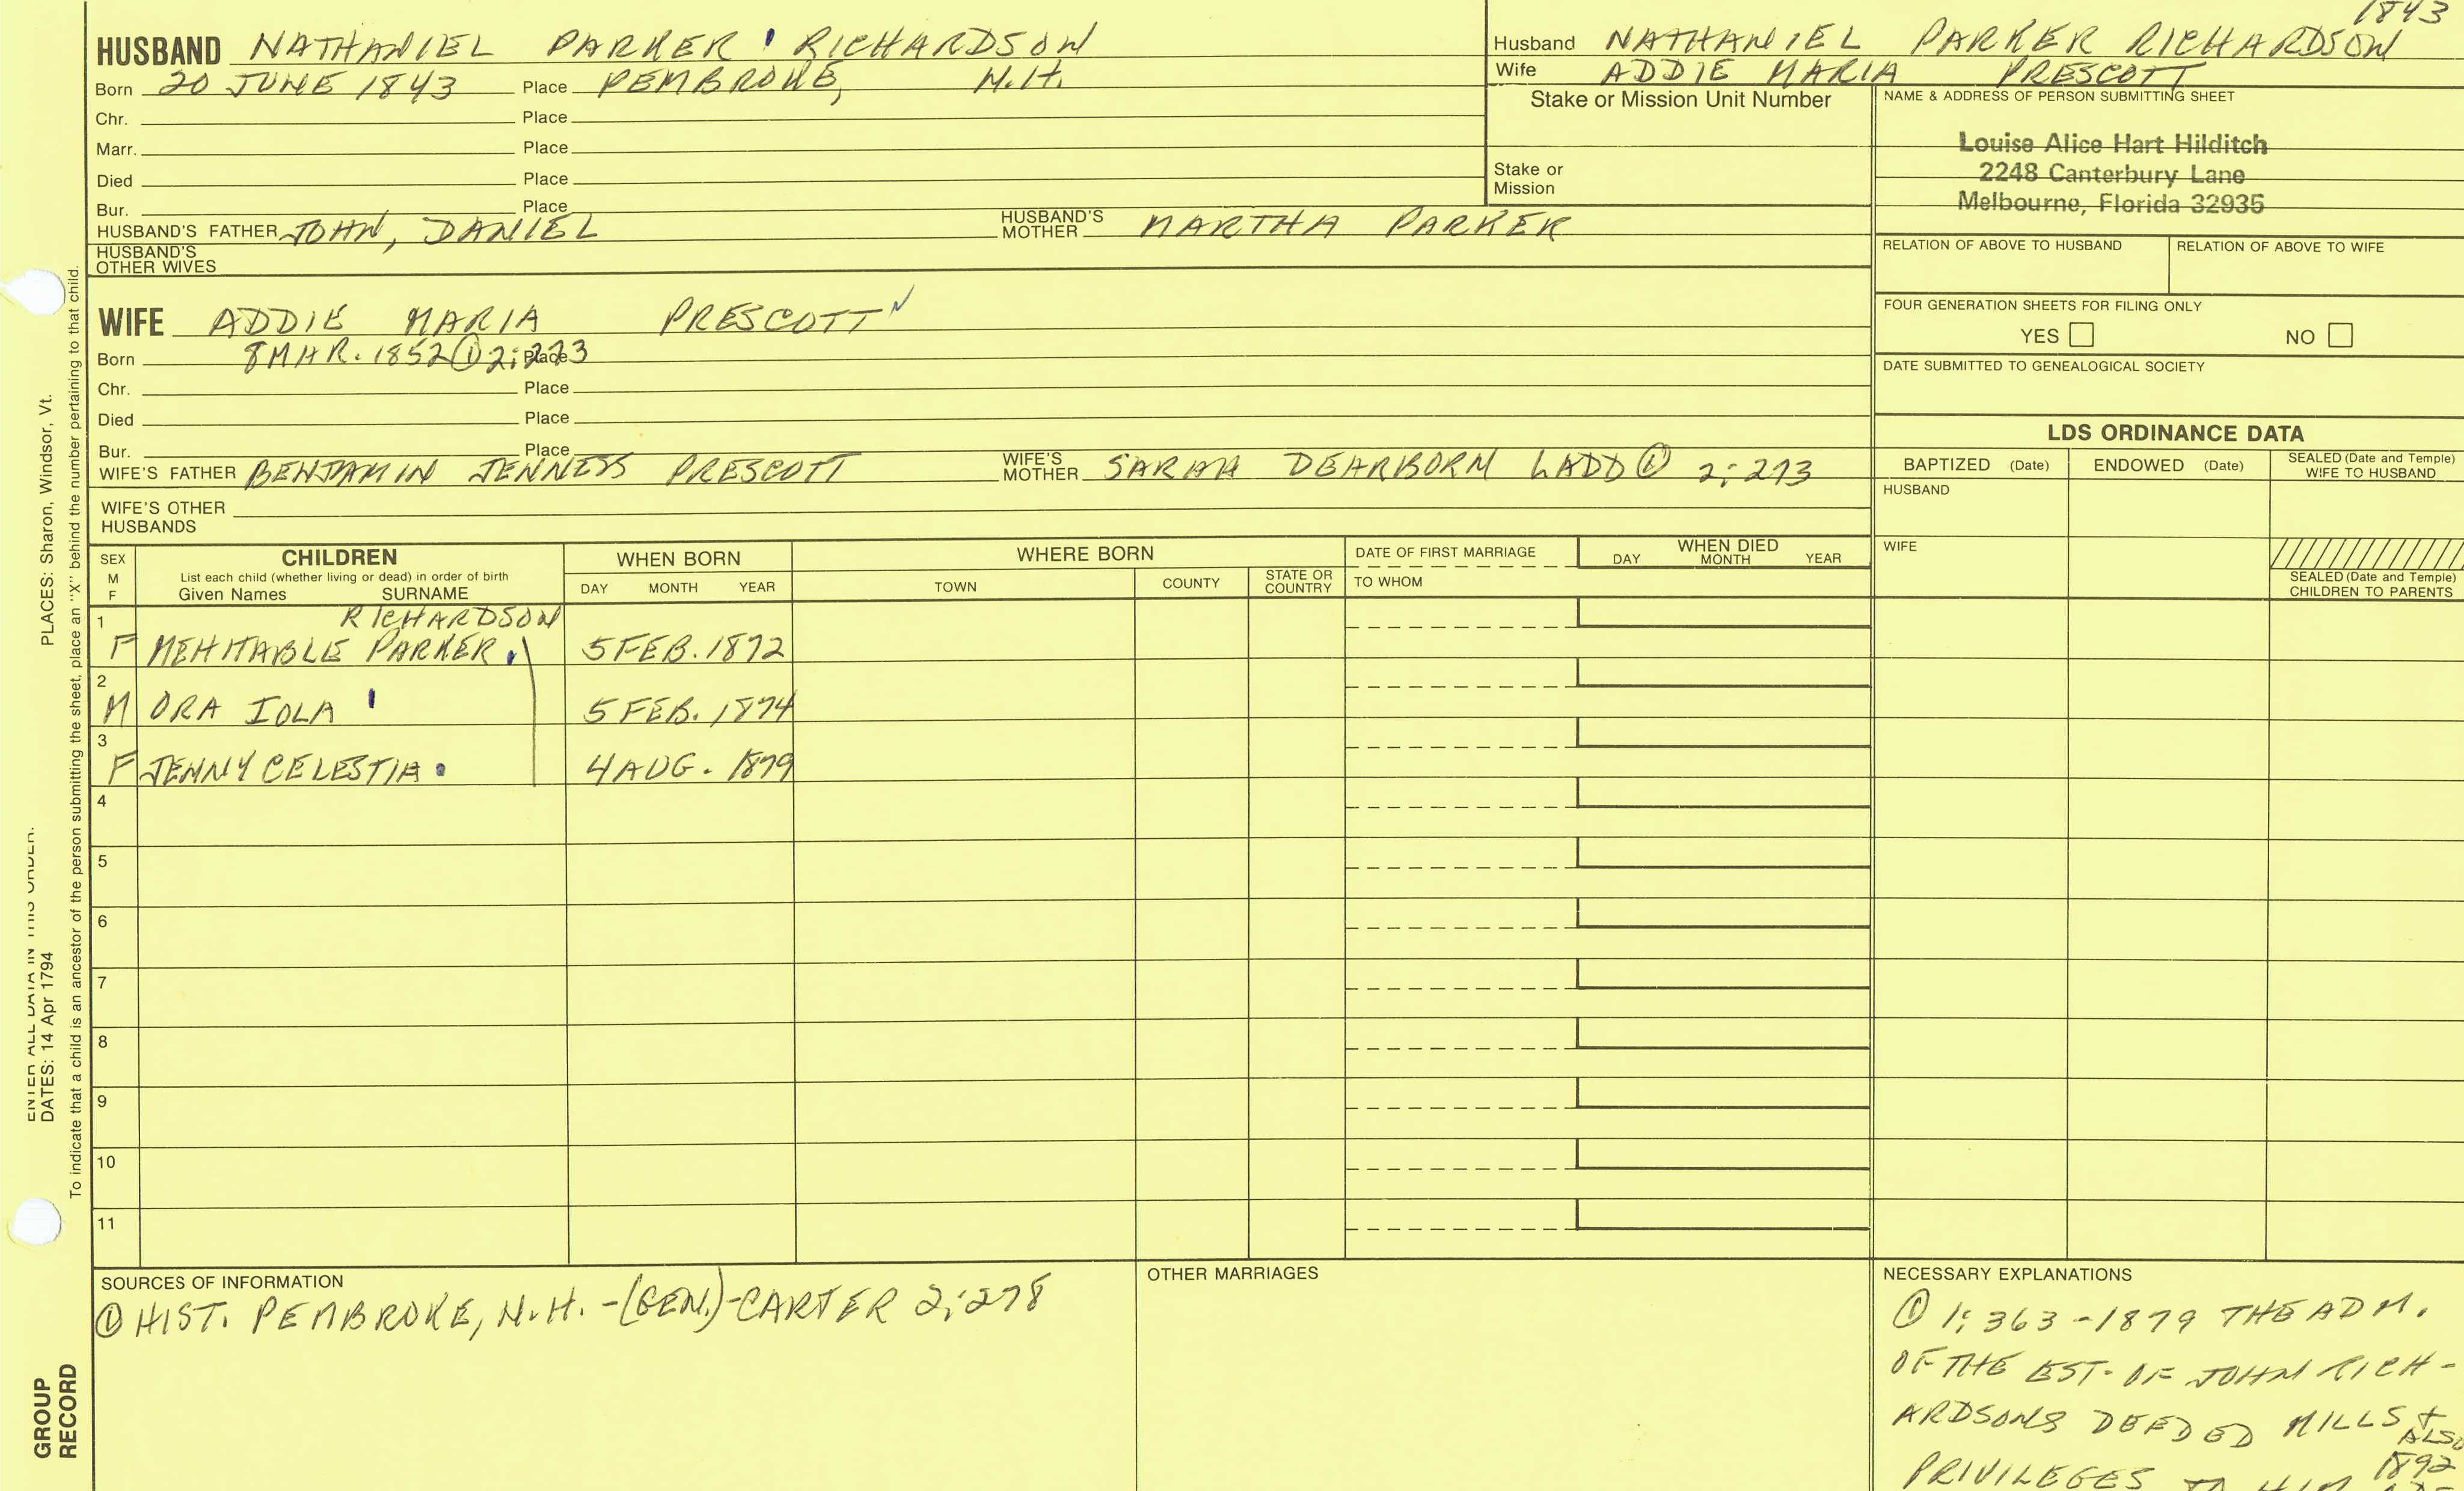 1843
HUSBAND NATHANIEL PARKER RICHARDSON
Born 20 JUNE 1843 Place PEMBROKE, N.H.
Chr. Place
Marr. Place
Died Place
Bur. Place
HUSBAND'S FATHER JOHN, DANIEL HUSBAND'S MOTHER MARTHA PARKER
HUSBAND'S OTHER WIVES
Husband NATHANIEL PARKER RICHARDSON
Wife ADDIE MARIA PRESCOTT
Stake or Mission Unit Number
Stake or Mission
NAME & ADDRESS OF PERSON SUBMITTING SHEET
Louise Alice Hart Hilditch
2248 Canterbury Lane
Melbourne, Florida 32935
RELATION OF ABOVE TO HUSBAND RELATION OF ABOVE TO WIFE
FOUR GENERATION SHEETS FOR FILING ONLY
YES NO
DATE SUBMITTED TO GENEALOGICAL SOCIETY
WIFE ADDIE MARIA PRESCOTT
Born 8 MAR. 1852 ① 2:273 Place
Chr. Place
Died Place
Bur. Place
WIFE'S FATHER BENJAMIN JENNESS PRESCOTT WIFE'S MOTHER SARAH DEARBORN LADD ① 2:273
WIFE'S OTHER HUSBANDS
LDS ORDINANCE DATA
BAPTIZED (Date) ENDOWED (Date) SEALED (Date and Temple) WIFE TO HUSBAND
HUSBAND
WIFE
SEALED (Date and Temple) CHILDREN TO PARENTS
SEX M F
CHILDREN
List each child (whether living or dead) in order of birth
Given Names SURNAME
WHEN BORN
DAY MONTH YEAR
WHERE BORN
TOWN COUNTY STATE OR COUNTRY
DATE OF FIRST MARRIAGE
TO WHOM
WHEN DIED
DAY MONTH YEAR
RICHARDSON
1 F MEHITABLE PARKER 5 FEB. 1872
2 M ORA IOLA 5 FEB. 1874
3 F JENNY CELESTIA 4 AUG. 1879
4
5
6
7
8
9
10
11
SOURCES OF INFORMATION
① HIST. PEMBROKE, N.H. -(GEN.)-CARTER 2:278
OTHER MARRIAGES
NECESSARY EXPLANATIONS
① 1:363-1879 THE ADM.
OF THE EST. OF JOHN RICH-
ARDSONS DEEDED MILLS +
ALSO
PRIVILEGES TO HIM
1892
ENTER ALL DATA IN THIS ORDER:
DATES: 14 Apr 1794 PLACES: Sharon, Windsor, Vt.
To indicate that a child is an ancestor of the person submitting the sheet, place an "X" behind the number pertaining to that child.
GROUP
RECORD